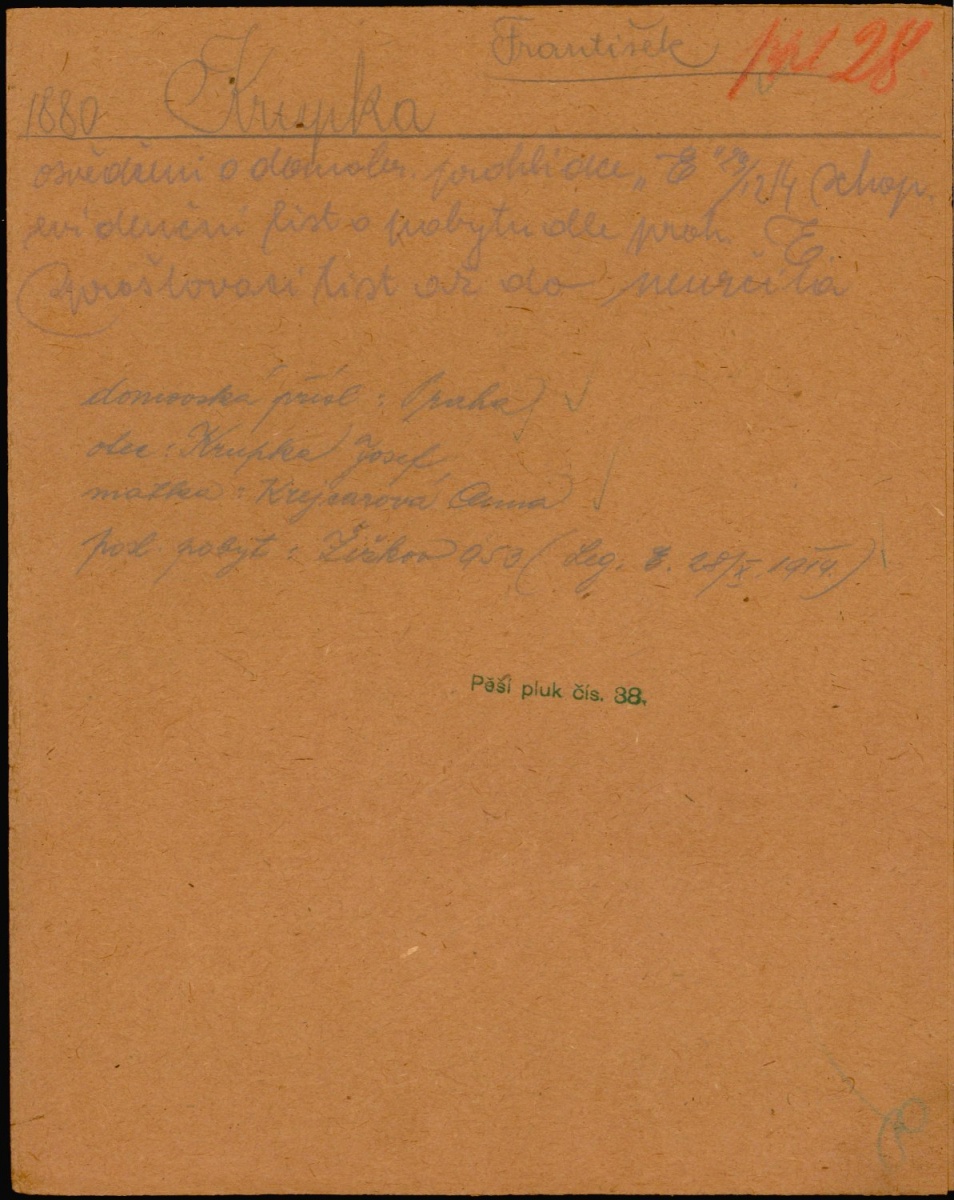 František
ppl 28
1880 Krupka
osvědčení o domobr. prohlídce „E" 29/12 14 schop.
evidenční list o pobytu dle proh. E
Sprošťovací list až do neurčita
domovská přísl : Praha
otec : Krupka Josef
matka : Krejcarová Anna
posl. pobyt : Žižkov 953 ( Leg. E. 28/X 1914. )
Pěší pluk čís. 88.